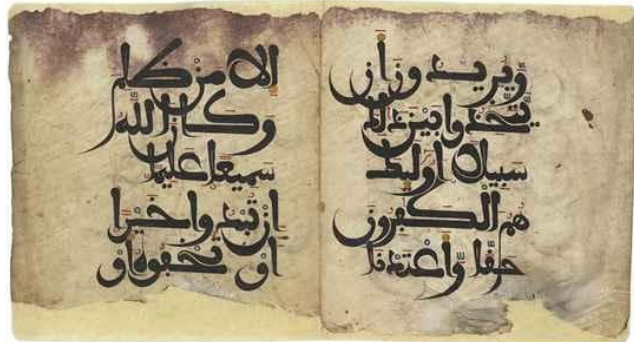 وَّيريدون أن
يتّخذوا بين ذلك
سبيلا أوليك
هم الكفرون
حقّا وّأعتدنا
إلا من ظلم
وكان اللّه
سميعا عليما
إن تبدوا خيرا
أو تخفوه أو